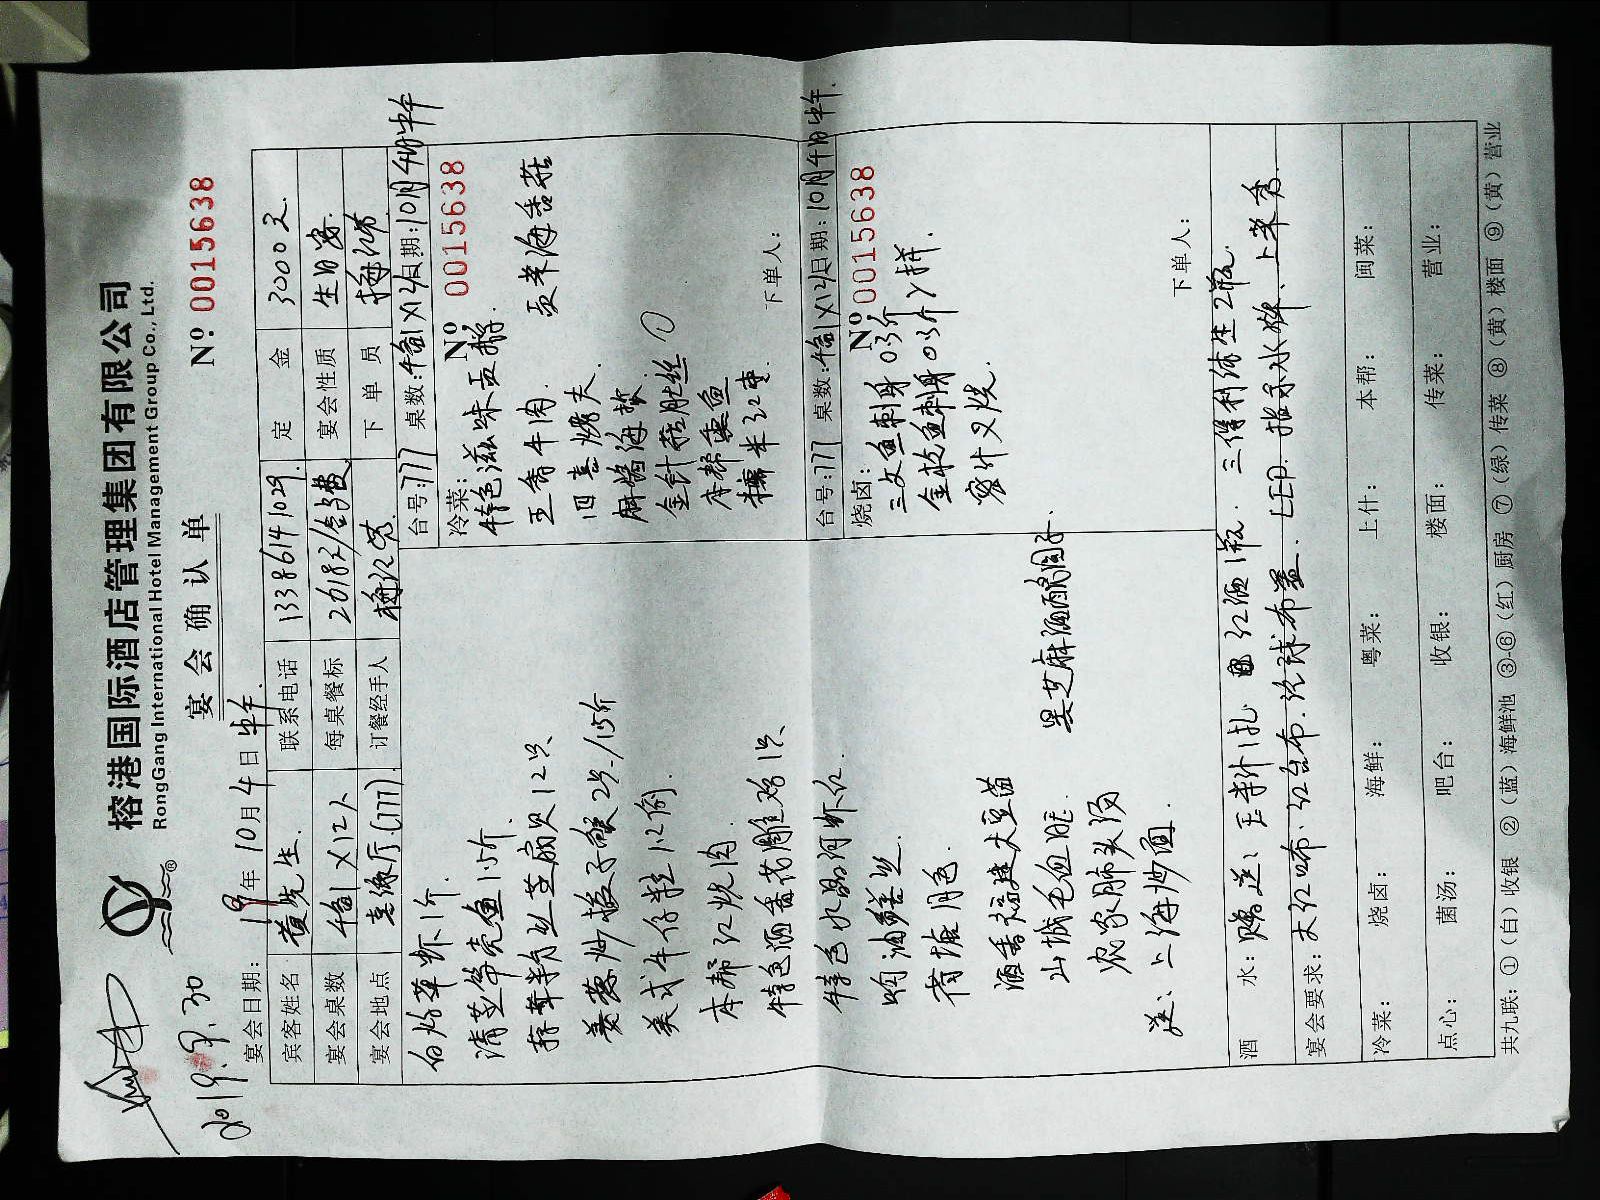 榕港国际酒店管理集团有限公司
RongGang International Hotel Management Group Co., Ltd.
宴会确认单
Nº 0015638
2019.9.30
宴会日期: 19年10月4日中午
宾客姓名 黄先生 联系电话 13386141029 定金 3000元
宴会桌数 ×12人 每桌餐标 2018元/ 宴会性质 生日宴
宴会地点 (777) 订餐经手人 下单员
台号:777 桌数: 日期:10月4日中午
Nº 0015638
冷菜:
特色滋味
五香牛肉
四喜烤夫
麻酱海蜇
金针菇肚丝
本帮熏鱼
糯米红枣
下单人:
白灼草虾1斤
清蒸笋壳鱼1.5斤
蒜茸粉丝蒸扇贝12只
姜葱炒 2只/1.5斤
美式牛仔粒1.2例
本帮红烧肉
特色酒香花雕鸡1只
特色水晶河虾仁
响油鳝丝
荷塘月色
酒香 大豆苗
山城毛血旺
农家 头汤
黑芝麻酒酿圆子
送: 上海炒面
台号:777 桌数: 日期:10月4日中午
Nº 0015638
烧卤:
三文鱼刺身0.3斤
金枪鱼刺身0.3斤 拼
蜜汁叉烧
下单人:
酒水: 赠送: 玉米汁1扎 红酒1瓶 三得利纯生2瓶
宴会要求: 大红 布. 红台布. 汽球布置. LED. 指示水牌.
冷菜: 烧卤: 海鲜: 粤菜: 上什: 本帮: 闽菜:
点心: 菌汤: 吧台: 收银: 楼面: 传菜: 营业:
共九联: ①(白)收银 ②(蓝)海鲜池 ③-⑥(红)厨房 ⑦(绿)传菜 ⑧(黄)楼面 ⑨(黄)营业